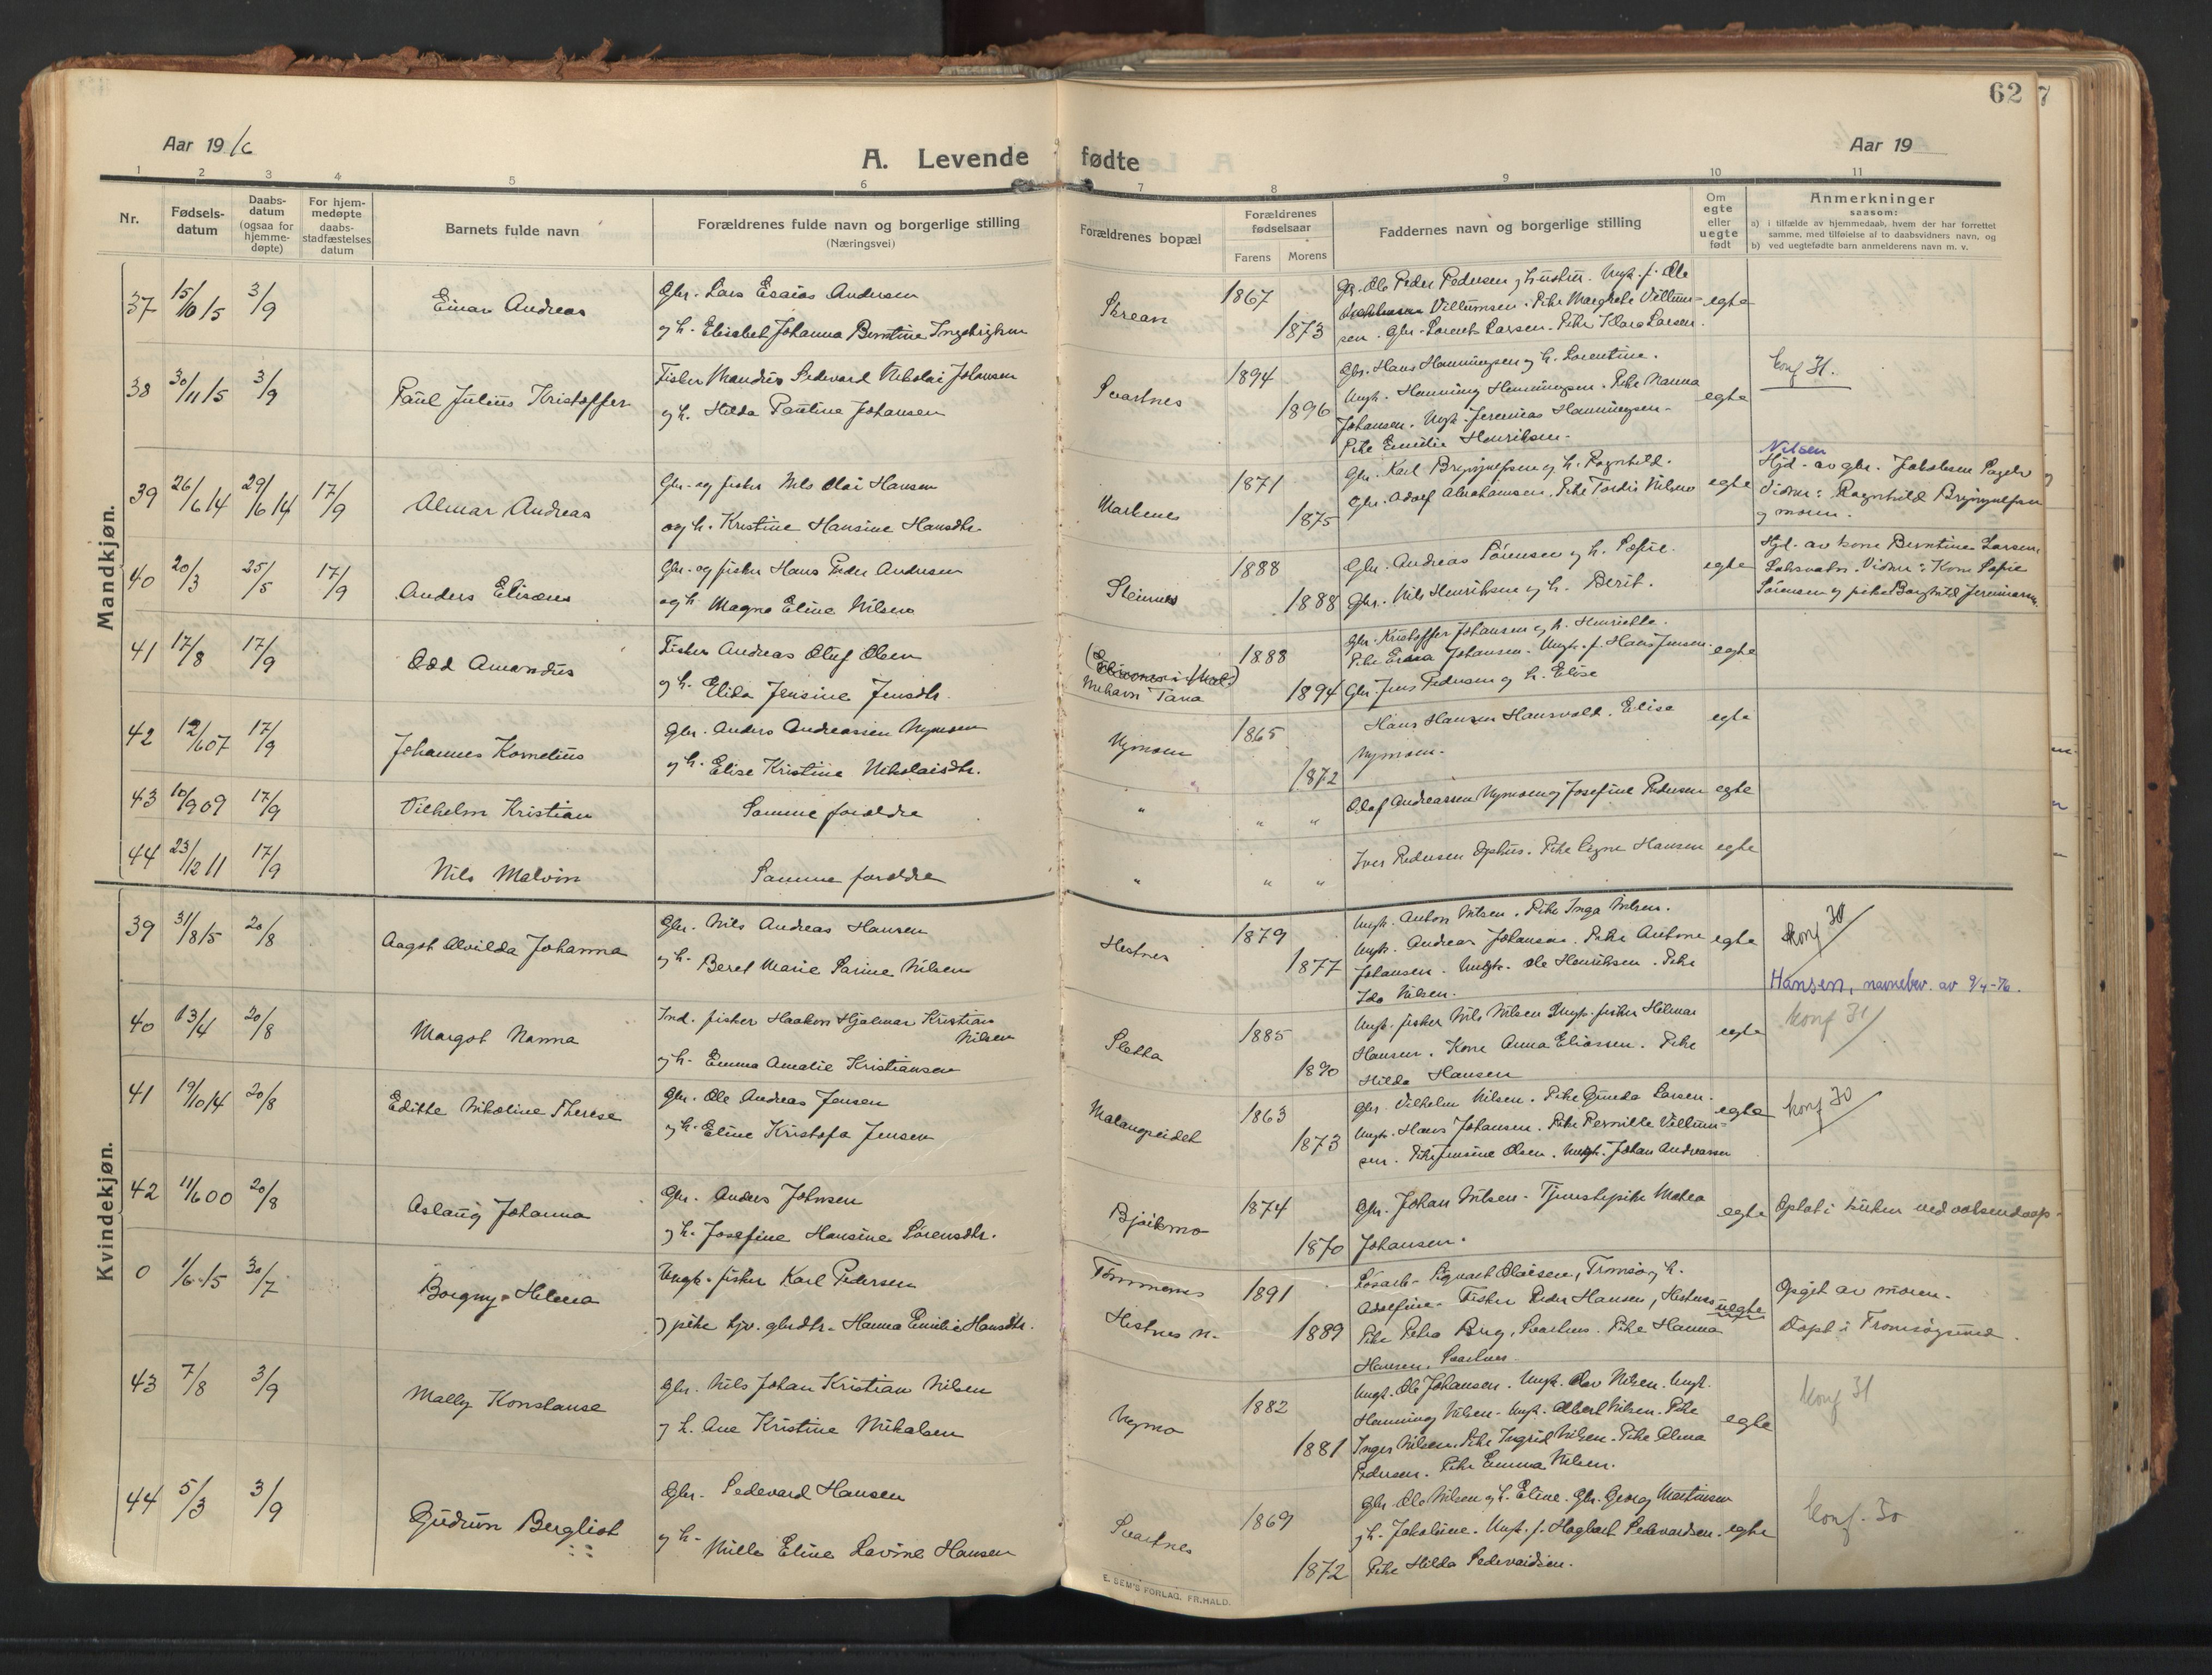 62
7
Aar 19 16
A. Levende fødte
Aar 19
1 2 3 4 5 6 7 8 9 10 11
Nr.
Fødsels-
datum
Daabs-
datum
(ogsaa for
hjemme-
døpte)
For hjem-
medøpte
daabs-
stadfæstelses
datum
Barnets fulde navn
Forældrenes fulde navn og borgerlige stilling
(Næringsvei)
Forældrenes bopæl
Forældrenes
fødselsaar
Farens Morens
Faddernes navn og borgerlige stilling
Om
egte
eller
uegte
født
Anmerkninger
saasom:
a) i tilfælde av hjemmedaab, hvem der har forrettet
samme, med tilføielse af to daabsvidners navn, og
b) ved uegtefødte barn anmelderens navn m. v.
Mandkjøn.
37 15/10 15 3/9 Einar Andreas
Gbr. Lars Esaias Andersen
og h. Elisabet Johanna Berntine
1867
1873
Gbr. Ole Peder Pedersen og hustru. Ungk. f. Ole
Villumsen. Pike Margrete Villum-
sen. Gbr. Lorents Larsen. Pike Klara Larsen.
egte
38 30/11 15 3/9 Paul Julius Kristoffer
Fisker Mandius Sedevard Nikolai Johansen
og h. Hilda Pauline Johansen
Svartnes
1894
1896
Gbr. Hans Henningsen og h. Lorentine.
Ungk. Henning Henningsen. Pike Nanna
Johansen. Ungk. Jeremias Henningsen.
Pike Emilie Henriksen.
egte
konf 31.
39 26/6 14 29/6 14 17/9 Almar Andreas
Gbr. og fisker Nils Olai Hansen
og h. Kristine Hansine Hansdtr.
Markenes
1871
1875
Gbr. Karl Brynjulfsen og h. Ragnhild.
Gbr. Adolf Abrahamsen. Pike Tordis Nilsen
egte
Nilsen
Hjd. av gbr. Jakobsen
Vidner: Ragnhild Brynjulfsen
og moren.
40 20/3 25/5 17/9 Anders Elisæus
Gbr. og fisker Hans Peder Andersen
og h. Magna Eline Nilsen
Steinnes
1888
1888
Gbr. Andreas Sørensen og h. Sofie.
Gbr. Nils Henriksen og h. Berit.
egte
Hjd. av kone Berntine Larsen
Laksvatn. Vidner: Kone Sofie
Sørensen og pike Borghild Jeremiassen.
41 17/8 17/9 Odd Amandus
Fisker Andreas Oluf Olsen
og h. Elida Jensine Jensdtr.
Mehavn Tana
1888
1894
Gbr. Kristoffer Johansen og h. Henriette.
Pike Johansen. Ungk. f. Hans Jensen.
Gbr. Jens Pedersen og h. Elise
egte
42 12/6 07 17/9 Johannes Kornelius
Gbr. Anders Andreassen Nymoen
og h. Elise Kristine Nikolaisdtr.
Nymoen
1865
1872
Hans Hansen Hansvold. Elise
Nymoen.
egte
43 10/9 09 17/9 Vilhelm Kristian
Samme forældre
" " "
Olaf Andreassen Nymoen og Josefine Pedersen
egte
44 23/12 11 17/9 Nils Malvin
Samme forældre
" " "
Iver Pedersen Ophus. Pike Signe Hansen
egte
Kvindekjøn.
39 31/8 15 20/8 Aagot Alvilda Johanna
Gbr. Nils Andreas Hansen
og h. Beret Marie Sarine Nilsen
Hestnes
1879
1877
Ungk. Anton Nilsen. Pike Inga Nilsen.
Ungk. Andreas Johansen. Pike Antone
Johansen. Ungk. Ole Henriksen. Pike
Ida Nilsen.
egte
konf 30
Hansen, navnebev. av 9/4-76.
40 13/4 20/8 Margot Nanna
Ind. fisker Haakon Hjalmar Kristian
Nilsen
og h. Emma Amalie Kristiansen
Sletta
1885
1890
Ungk. fisker Nils Nilsen Ungk. fisker Hilmar
Hansen. Kone Anna Eliassen. Pike
Hilda Hansen
egte
konf 31
41 19/10 14 20/8 Edithe Nikoline Therese
Gbr. Ole Andreas Jensen
og h. Eline Kristofa Jensen
Malangseidet
1863
1873
Gbr. Vilhelm Nilsen. Pike Gunda Larsen.
Ungk. Hans Johansen. Pike Pernille Villum-
sen. Pike Jensine Olsen. Ungk. Johan Andreassen
egte
konf 30
42 11/6 00 20/8 Aslaug Johanna
Gbr. Anders Johnsen
og h. Josefine Hansine Sørensdtr.
Bjørkmo
1874
1870
Gbr. Johan Nilsen. Tjenestepike Matea
Johansen.
egte
Optat i kirken ved voksendaap.
0 1/6 15 30/7 Borgny Helena
Ungk. fisker Karl Pedersen
og pike hjv. gbrdtr. Hanna Emilie Hansdtr.
Tømmernes
Hestnes m.
1891
1889
Løsarb. Sigvart Olaisen, Tromsø og h.
Adsefine. Fisker Peder Hansen, Hestnes
Pike Petra Berg, Svartnes. Pike Hanna
Hansen, Svartnes.
uegte
Opgit av moren.
Døpt i Tromsøysund.
43 7/8 3/9 Mally Konstanse
Gbr. Nils Johan Kristian Nilsen
og h. Ane Kristine Mikalsen
Nymo
1882
1881
Ungk. Ole Johansen. Ungk. Olav Nilsen. Ungk.
Henning Nilsen. Ungk. Albert Nilsen. Pike
Inger Nilsen. Pike Ingrid Nilsen. Pike Alma
Pedersen. Pike Emma Nilsen.
egte
konf 31
44 5/3 3/9 Gudrun Bergliot
Gbr. Sedevard Hansen
og h. Mille Eline Lavine Hansen
Svartnes
1869
1872
Gbr. Ole Nilsen og h. Eline. Gbr. Georg Martinsen
og h. Jakobine. Ungk. f. Hagbart Sedevardsen.
Pike Hilda Sedevardsen.
egte
konf. 30
E. SEM'S FORLAG, FR.HALD.